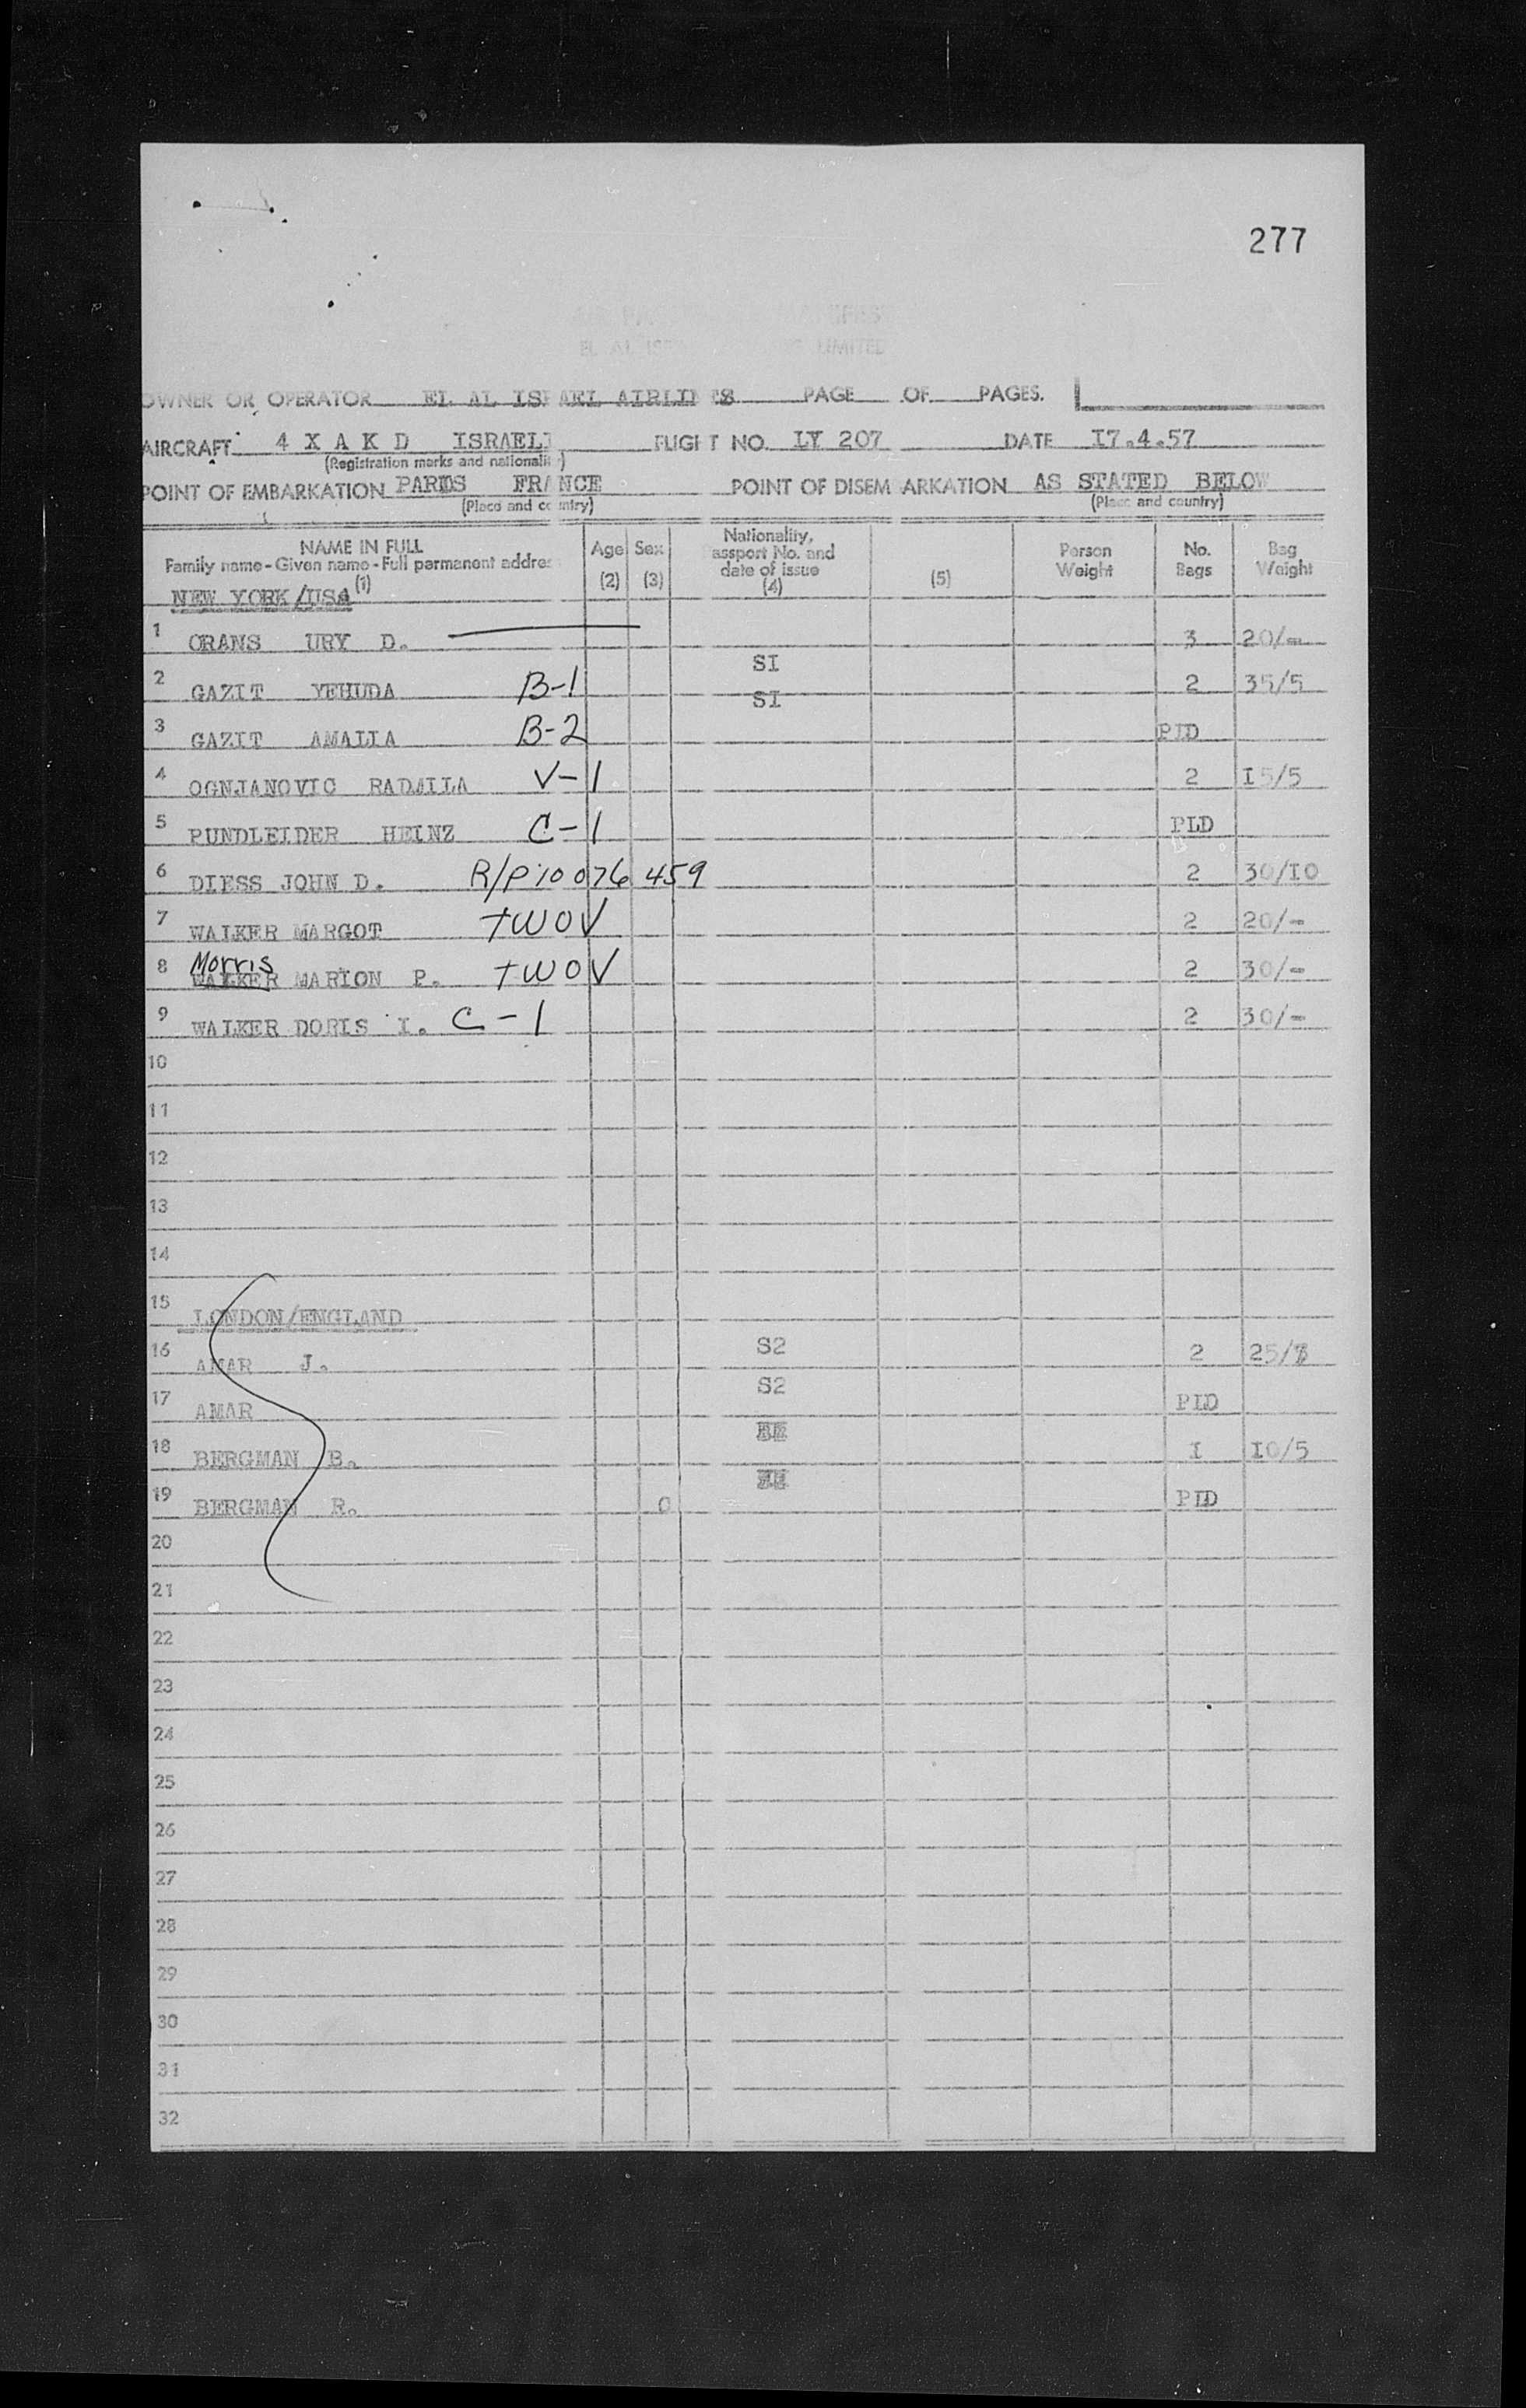 277
EL AL LIMITED
OWNER OR OPERATOR EL AL ISRAEL AIRLINES PAGE OF PAGES.
AIRCRAFT 4 X A K D ISRAELI FLIGHT NO. LY 207 DATE I7.4.57
(Registration marks and nationality)
POINT OF EMBARKATION PARIS FRANCE POINT OF DISEMBARKATION AS STATED BELOW
(Place and country) (Place and country)
NAME IN FULL Age Sex Nationality, Person No. Bag
Family name - Given name - Full permanent address assport No. and Weight Bags Weight
(1) (2) (3) date of issue (4) (5)
NEW YORK/USA
1 ORANS URY D. 3 20/-
2 GAZIT YEHUDA B-1 SI 2 35/5
3 GAZIT AMALIA B-2 SI PLD
4 OGNJANOVIC RADJILA V-1 2 I5/5
5 PUNDLEIDER HEINZ C-1 PLD
6 DIESS JOHN D. R/P 10076459 2 30/I0
7 WALKER MARGOT TWOV 2 20/-
8 Morris WALKER MARION P. TWOV 2 30/-
9 WALKER DORIS I. C-1 2 30/-
10
11
12
13
14
15 LONDON/ENGLAND
16 AMAR J. S2 2 25/
17 AMAR S2 PLD
18 BERGMAN B. I I0/5
19 BERGMAN R. 0 PLD
20
21
22
23
24
25
26
27
28
29
30
31
32